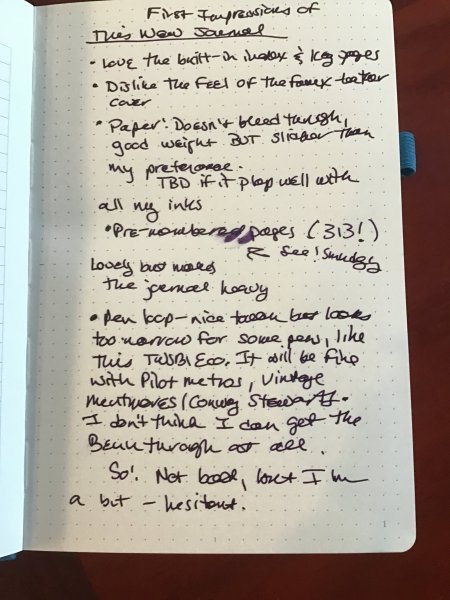 First Impressions of
This New Journal
• Love the built-in index & key pages
• Dislike the feel of the faux leather
cover
• Paper: Doesn't bleed through,
good weight BUT slicker than
my preference.
TBD if it plays well with
all my inks
• Pre-numbered pages (313!)
See! Smudgy
Lovely but makes
the journal heavy
• Pen loop – nice touch but looks
too narrow for some pens, like
this TWSBI Eco. It will be fine
with Pilot metros, vintage
Mentmores/Conway Stewarts.
I don't think I can get the
Benu through at all.
So! Not bad, but I'm
a bit – hesitant.
1